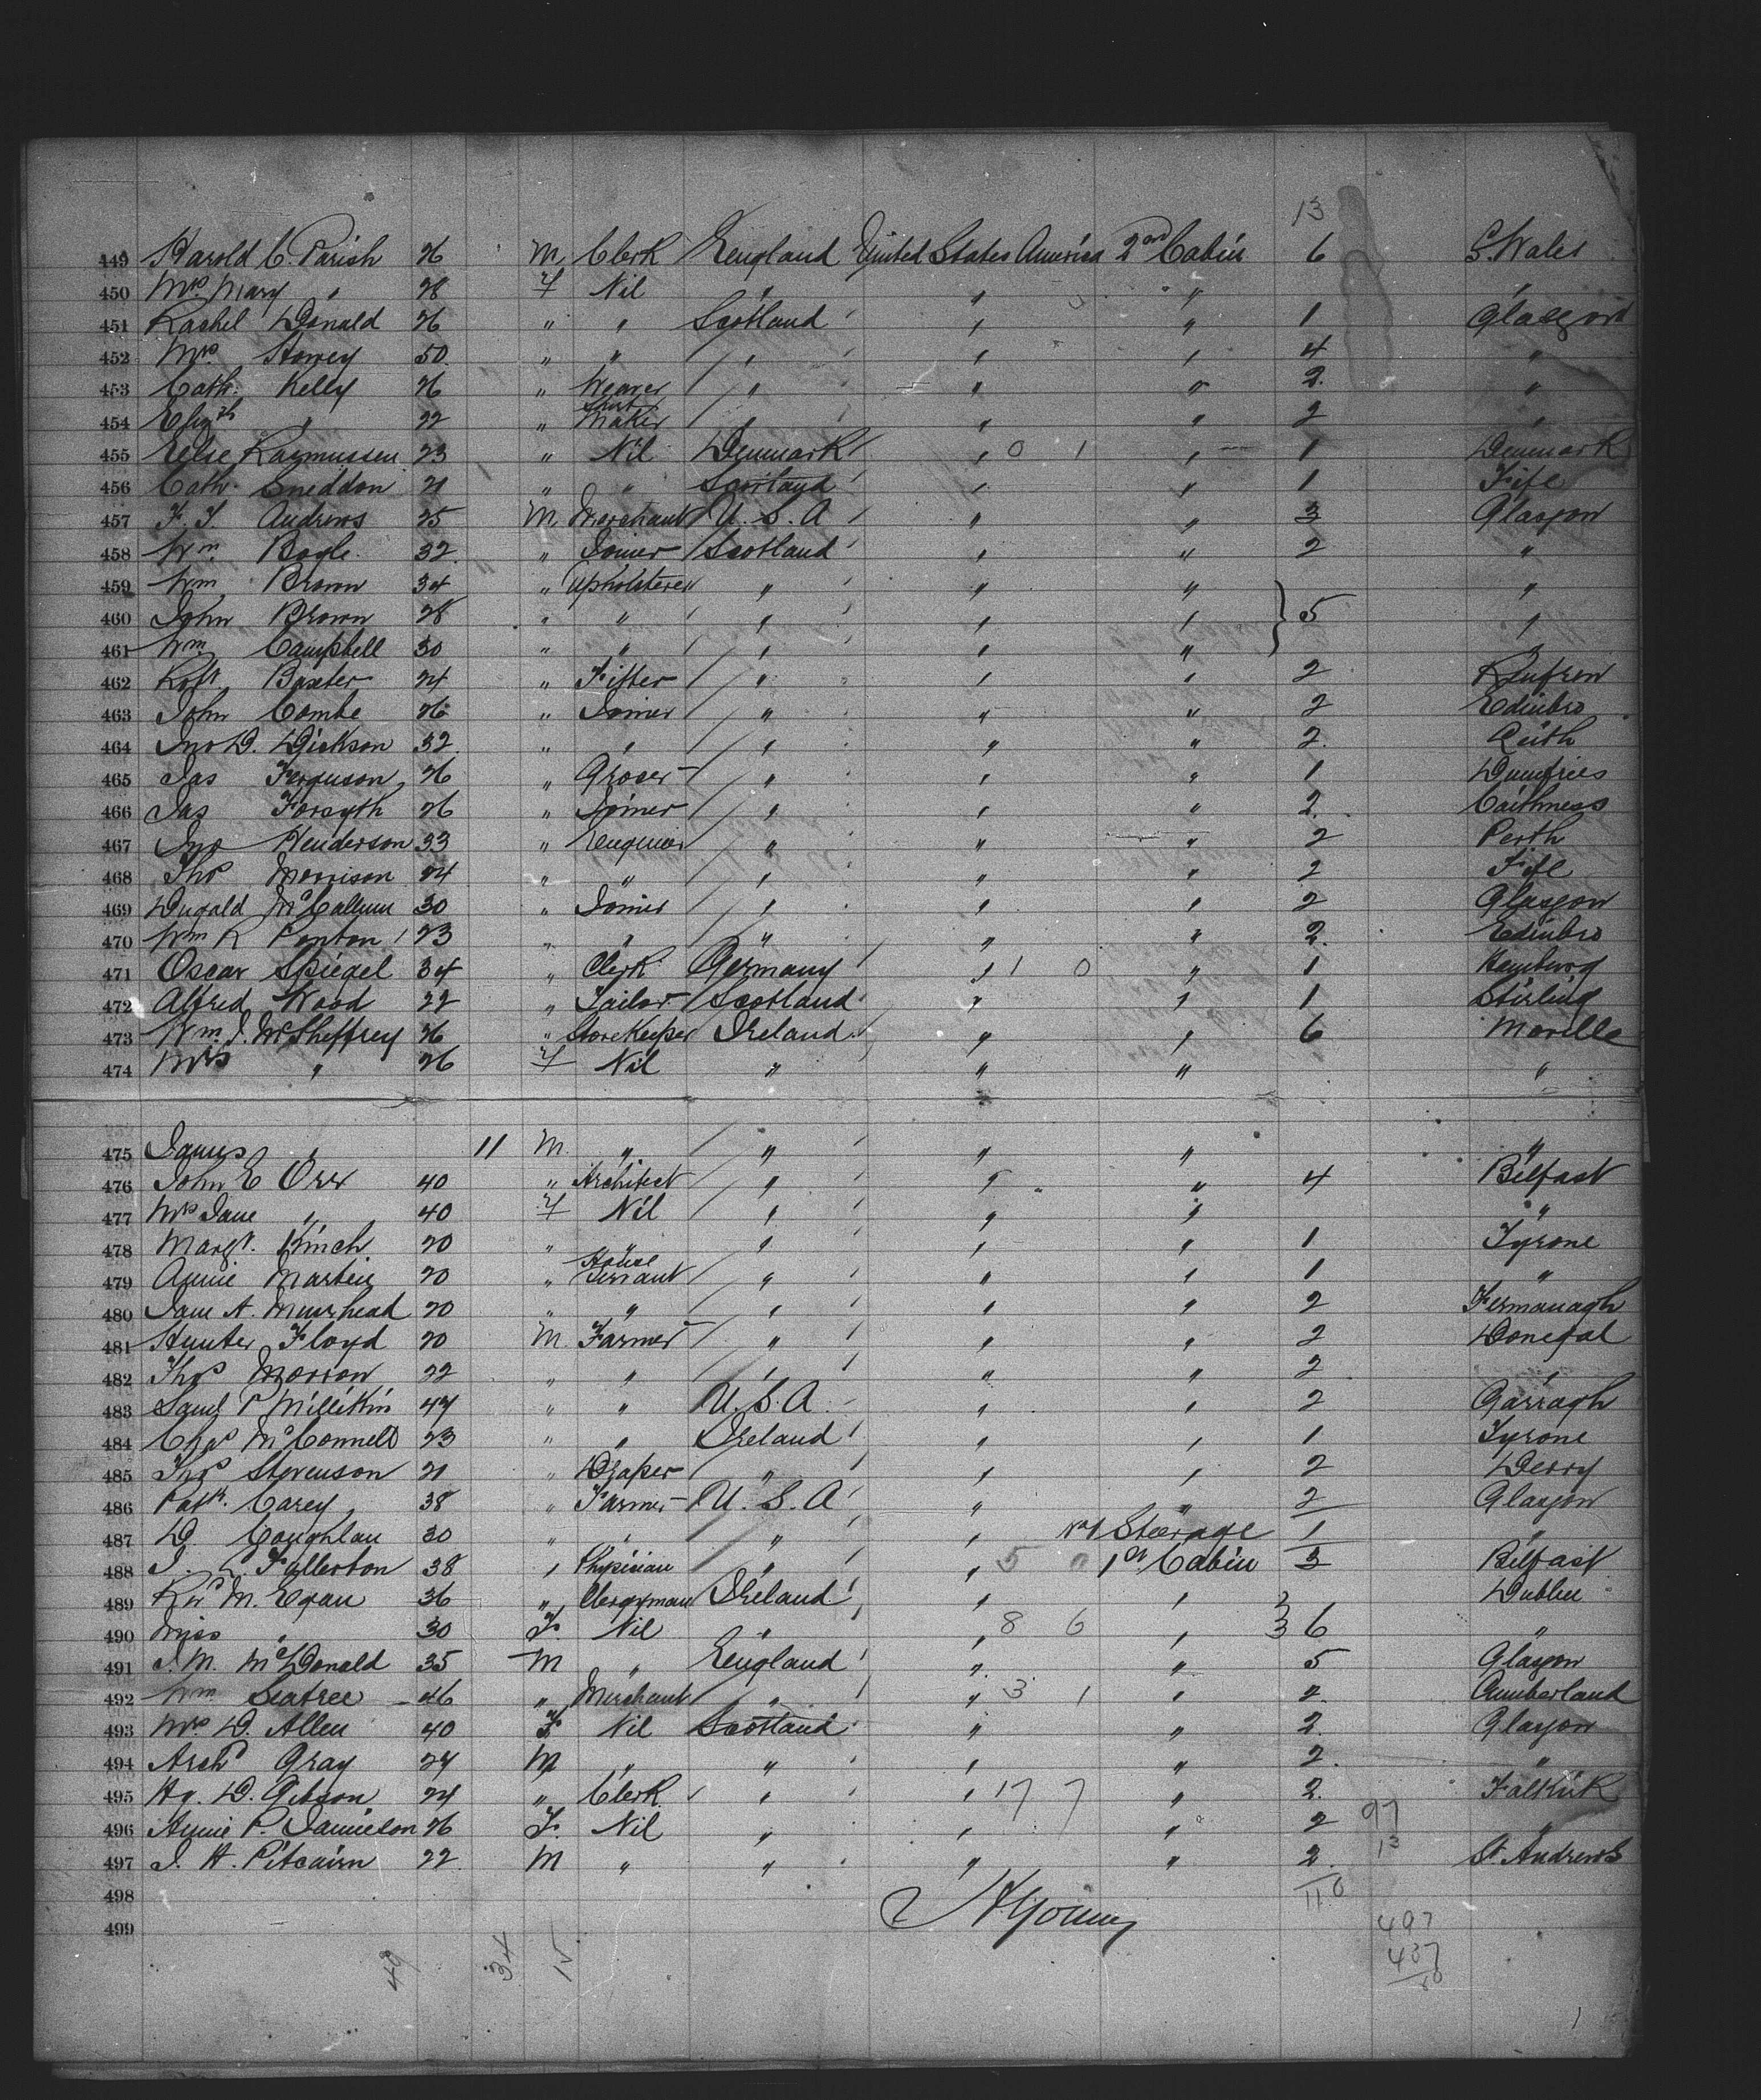 13
449 Harold C. Parish 26 M Clerk England United States America 2nd Cabin 6 S. Wales
450 Mrs Mary " 28 F Nil " " "
451 Rachel Donald 26 " " Scotland " " 1 Glasgow
452 Mrs Storrey 50 " " " " " 4 "
453 Cath. Kelly 26 " Weaver " " " 2. "
454 Elizth " 22 " Shirt Maker " " " 2 "
455 Else Rasmussen 23 " Nil Denmark " 0 1 " 1 Denmark
456 Cath. Sneddon 21 " " Scotland " " 1 Fife
457 F. S. Andrews 25 M Merchant U. S. A " " 3 Glasgow
458 Wm Bogle 32 " Joiner Scotland " " 2 "
459 Wm Brown 34 " Upholsterer " " " "
460 John Brown 28 " " " " " } 5 "
461 Wm Campbell 30 " " " " " "
462 Robt Baxter 24 " Fitter " " " 2 Renfrew
463 John Combe 26 " Joiner " " " 2 Edinbro
464 Jno D. Dickson 32 " " " " " 2. Leith
465 Jas Ferguson 26 " Grocer " " " 1 Dumfries
466 Jas Forsyth 26 " Joiner " " " 2. Caithness
467 Jno Henderson 33 " Engineer " " " 2 Perth
468 Thos Morrison 24 " " " " " 2 Fife
469 Dugald McCallum 30 " Joiner " " " 2 Glasgow
470 Wm R Ponton 23 " " " " " 2. Edinbro
471 Oscar Spiegel 34 " Clerk Germany " 1 0 " 1 Hamburg
472 Alfred Wood 22 " Tailor Scotland " " 1 Stirling
473 Wm J. McSheffrey 26 " Storekeeper Ireland " " 6 Moville
474 Mrs " 26 F Nil " " " "
475 James " 11 M " " " " "
476 John E Orr 40 " Architect " " " 4 Belfast
477 Mrs Jane " 40 F Nil " " " "
478 Margt. Kinch 20 " " " " " 1 Tyrone
479 Annie Martin 20 " House Servant " " " 1 "
480 Jane A. Muirhead 20 " " " " " 2 Fermanagh
481 Hunter Floyd 20 M. Farmer " " " 2 Donegal
482 Thos Morrow 22 " " " " " 2 "
483 Saml P Millikin 47 " " U. S. A. " " 2 Garragh
484 Chas McConnell 23 " " Ireland " " 1 Tyrone
485 Thos Stevenson 21 " Draper " " " 2 Derry
486 Patk. Carey 38 " Farmer U. S. A " " 2 Glasgow
487 D. Coughlan 30 " " " " Steerage 1 "
488 J. L. Fullerton 38 " Physician " " 5 0 1st Cabin 3 Belfast
489 Rev M. Egan 36 " Clergyman Ireland " " Dublin
490 Miss " 30 F. Nil " " 8 6 " } 6 "
491 J. M. McDonald 35 M " England " " 5 Glasgow
492 Wm Seatree 46 " Merchant " " 3 1 " 2. Cumberland
493 Mrs D. Allen 40 F Nil Scotland " " 2. Glasgow
494 Archd Gray 24 M " " " " 2. "
495 Hy. D. Gibson 24 " Clerk " " 17 7 " 2. Falkirk
496 Annie P. Danielson 26 F. Nil " " " 2 97 "
497 J. H. Pitcairn 22 M " " " " 2. 13 St. Andrews
498 110
499 497
49 34 15 437